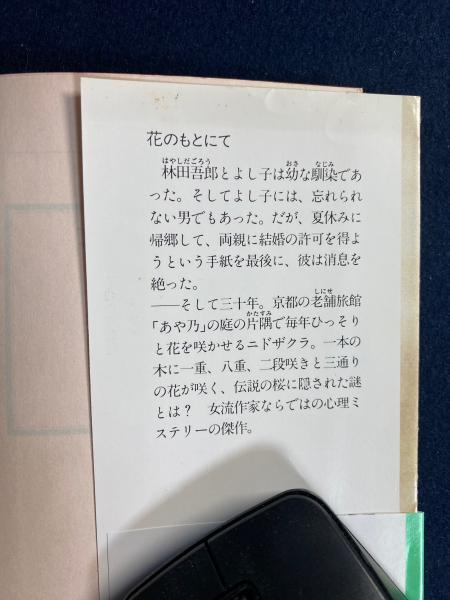 花のもとにて
林田吾郎とよし子は幼な馴染であ
はやしだごろう
おさ
なじみ
った。そしてよし子には、忘れられ
ない男でもあった。だが、夏休みに
帰郷して、両親に結婚の許可を得よ
うという手紙を最後に、彼は消息を
絶った。
――そして三十年。京都の老舗旅館
しにせ
「あや乃」の庭の片隅で毎年ひっそり
かたすみ
と花を咲かせるニドザクラ。一本の
木に一重、八重、二段咲きと三通り
の花が咲く、伝説の桜に隠された謎
とは？　女流作家ならではの心理ミ
ステリーの傑作。